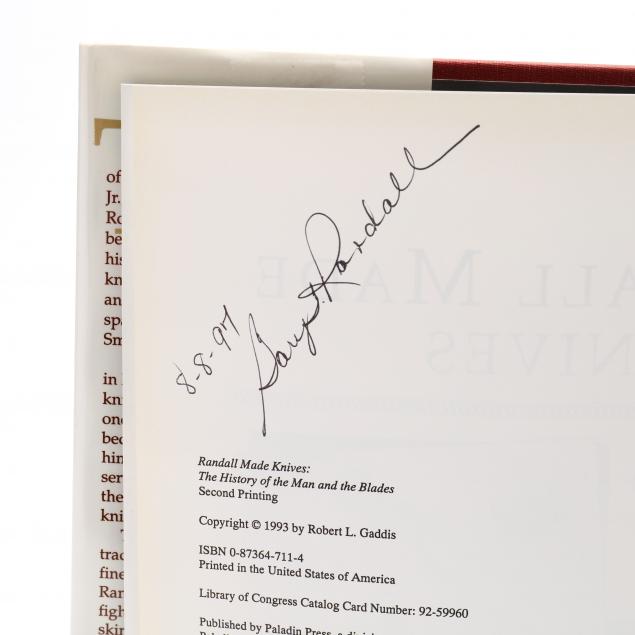 of
Jr.
Ro
be
his
kn
an
spa
Sm
in
kni
one
bec
him
serv
the
kni
T
trac
fine
Ran
figh
skin
8-8-97
Gary T. Randall
Randall Made Knives:
The History of the Man and the Blades
Second Printing
Copyright © 1993 by Robert L. Gaddis
ISBN 0-87364-711-4
Printed in the United States of America
Library of Congress Catalog Card Number: 92-59960
Published by Paladin Press, a divisi
ALL MADE
NIVES